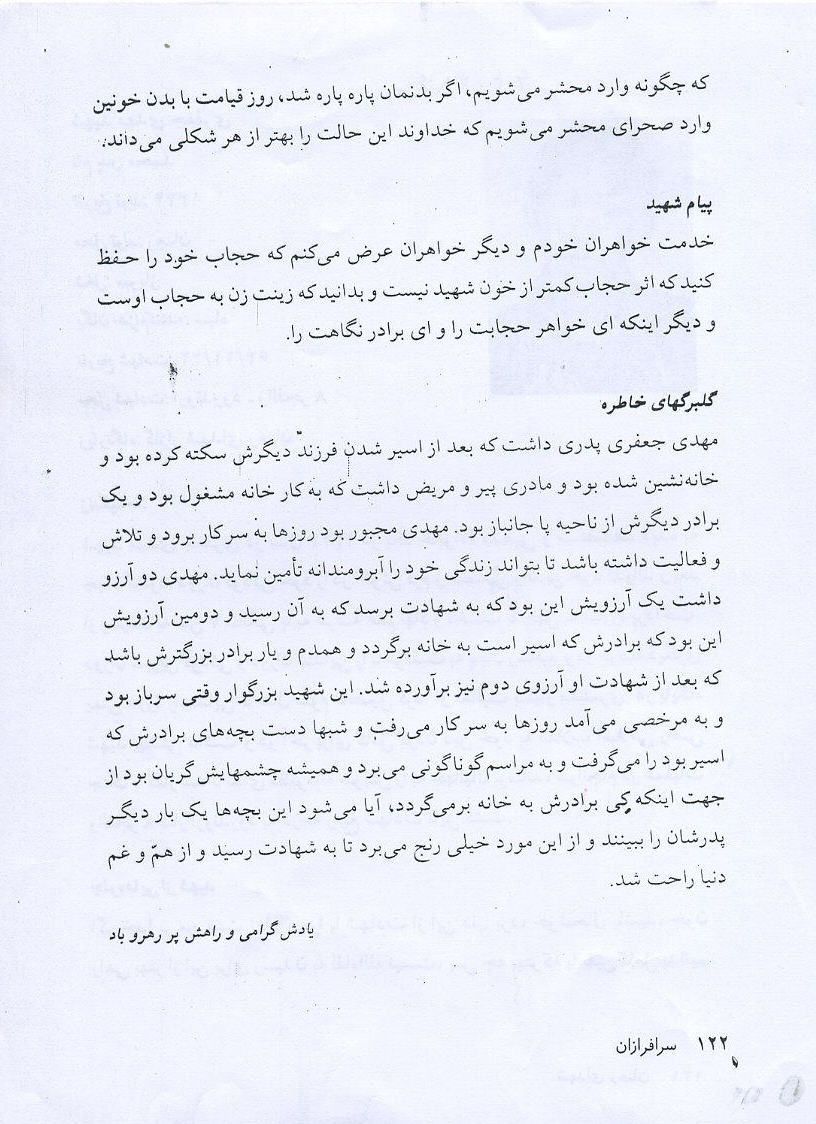 که چگونه وارد محشر می‌شویم، اگر بدنمان پاره پاره شد، روز قیامت با بدن خونین
وارد صحرای محشر می‌شویم که خداوند این حالت را بهتر از هر شکلی می‌داند.
پیام شهید
خدمت خواهران خودم و دیگر خواهران عرض می‌کنم که حجاب خود را حفظ
کنید که اثر حجاب کمتر از خون شهید نیست و بدانید که زینت زن به حجاب اوست
و دیگر اینکه ای خواهر حجابت را و ای برادر نگاهت را.
گلبرگهای خاطره
مهدی جعفری پدری داشت که بعد از اسیر شدن فرزند دیگرش سکته کرده بود و
خانه‌نشین شده بود و مادری پیر و مریض داشت که به کار خانه مشغول بود و یک
برادر دیگرش از ناحیه پا جانباز بود. مهدی مجبور بود روزها به سر کار برود و تلاش
و فعالیت داشته باشد تا بتواند زندگی خود را آبرومندانه تأمین نماید. مهدی دو آرزو
داشت یک آرزویش این بود که به شهادت برسد که به آن رسید و دومین آرزویش
این بود که برادرش که اسیر است به خانه برگردد و همدم و یار برادر بزرگترش باشد
که بعد از شهادت او آرزوی دوم نیز برآورده شد. این شهید بزرگوار وقتی سرباز بود
و به مرخصی می‌آمد روزها به سر کار می‌رفت و شبها دست بچه‌های برادرش که
اسیر بود را می‌گرفت و به مراسم گوناگونی می‌برد و همیشه چشمهایش گریان بود از
جهت اینکه کی برادرش به خانه برمی‌گردد، آیا می‌شود این بچه‌ها یک بار دیگر
پدرشان را ببینند و از این مورد خیلی رنج می‌برد تا به شهادت رسید و از همّ و غم
دنیا راحت شد.
یادش گرامی و راهش پر رهرو باد
۱۲۲ سرافرازان